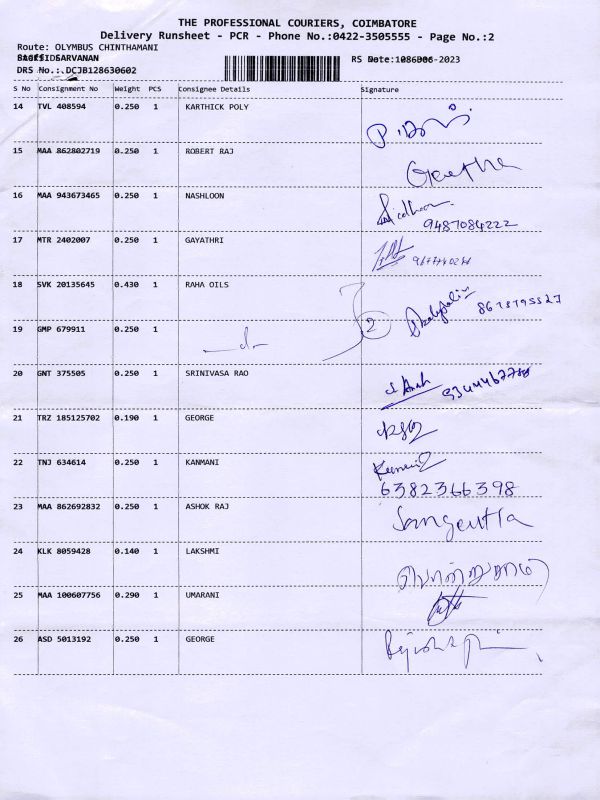 THE PROFESSIONAL COURIERS, COIMBATORE
Delivery Runsheet - PCR - Phone No.:0422-3505555 - Page No.:2
Route: OLYMBUS CHINTHAMANI
SARVANAN
RS Date: -2023
DRS No.:.DCJB128630602
S No Consignment No Weight PCS Consignee Details Signature
14 TVL 408594 0.250 1 KARTHICK POLY
15 MAA 862802719 0.250 1 ROBERT RAJ Geetha
16 MAA 943673465 0.250 1 NASHLOON
9487084222
17 MTR 2402007 0.250 1 GAYATHRI
18 SVK 20135645 0.430 1 RAHA OILS
19 GMP 679911 0.250 1 —do— 2
20 GNT 375505 0.250 1 SRINIVASA RAO
21 TRZ 185125702 0.190 1 GEORGE
22 TNJ 634614 0.250 1 KANMANI
6382366398
23 MAA 862692832 0.250 1 ASHOK RAJ Sangeetha
24 KLK 8059428 0.140 1 LAKSHMI
25 MAA 100607756 0.290 1 UMARANI
26 ASD 5013192 0.250 1 GEORGE